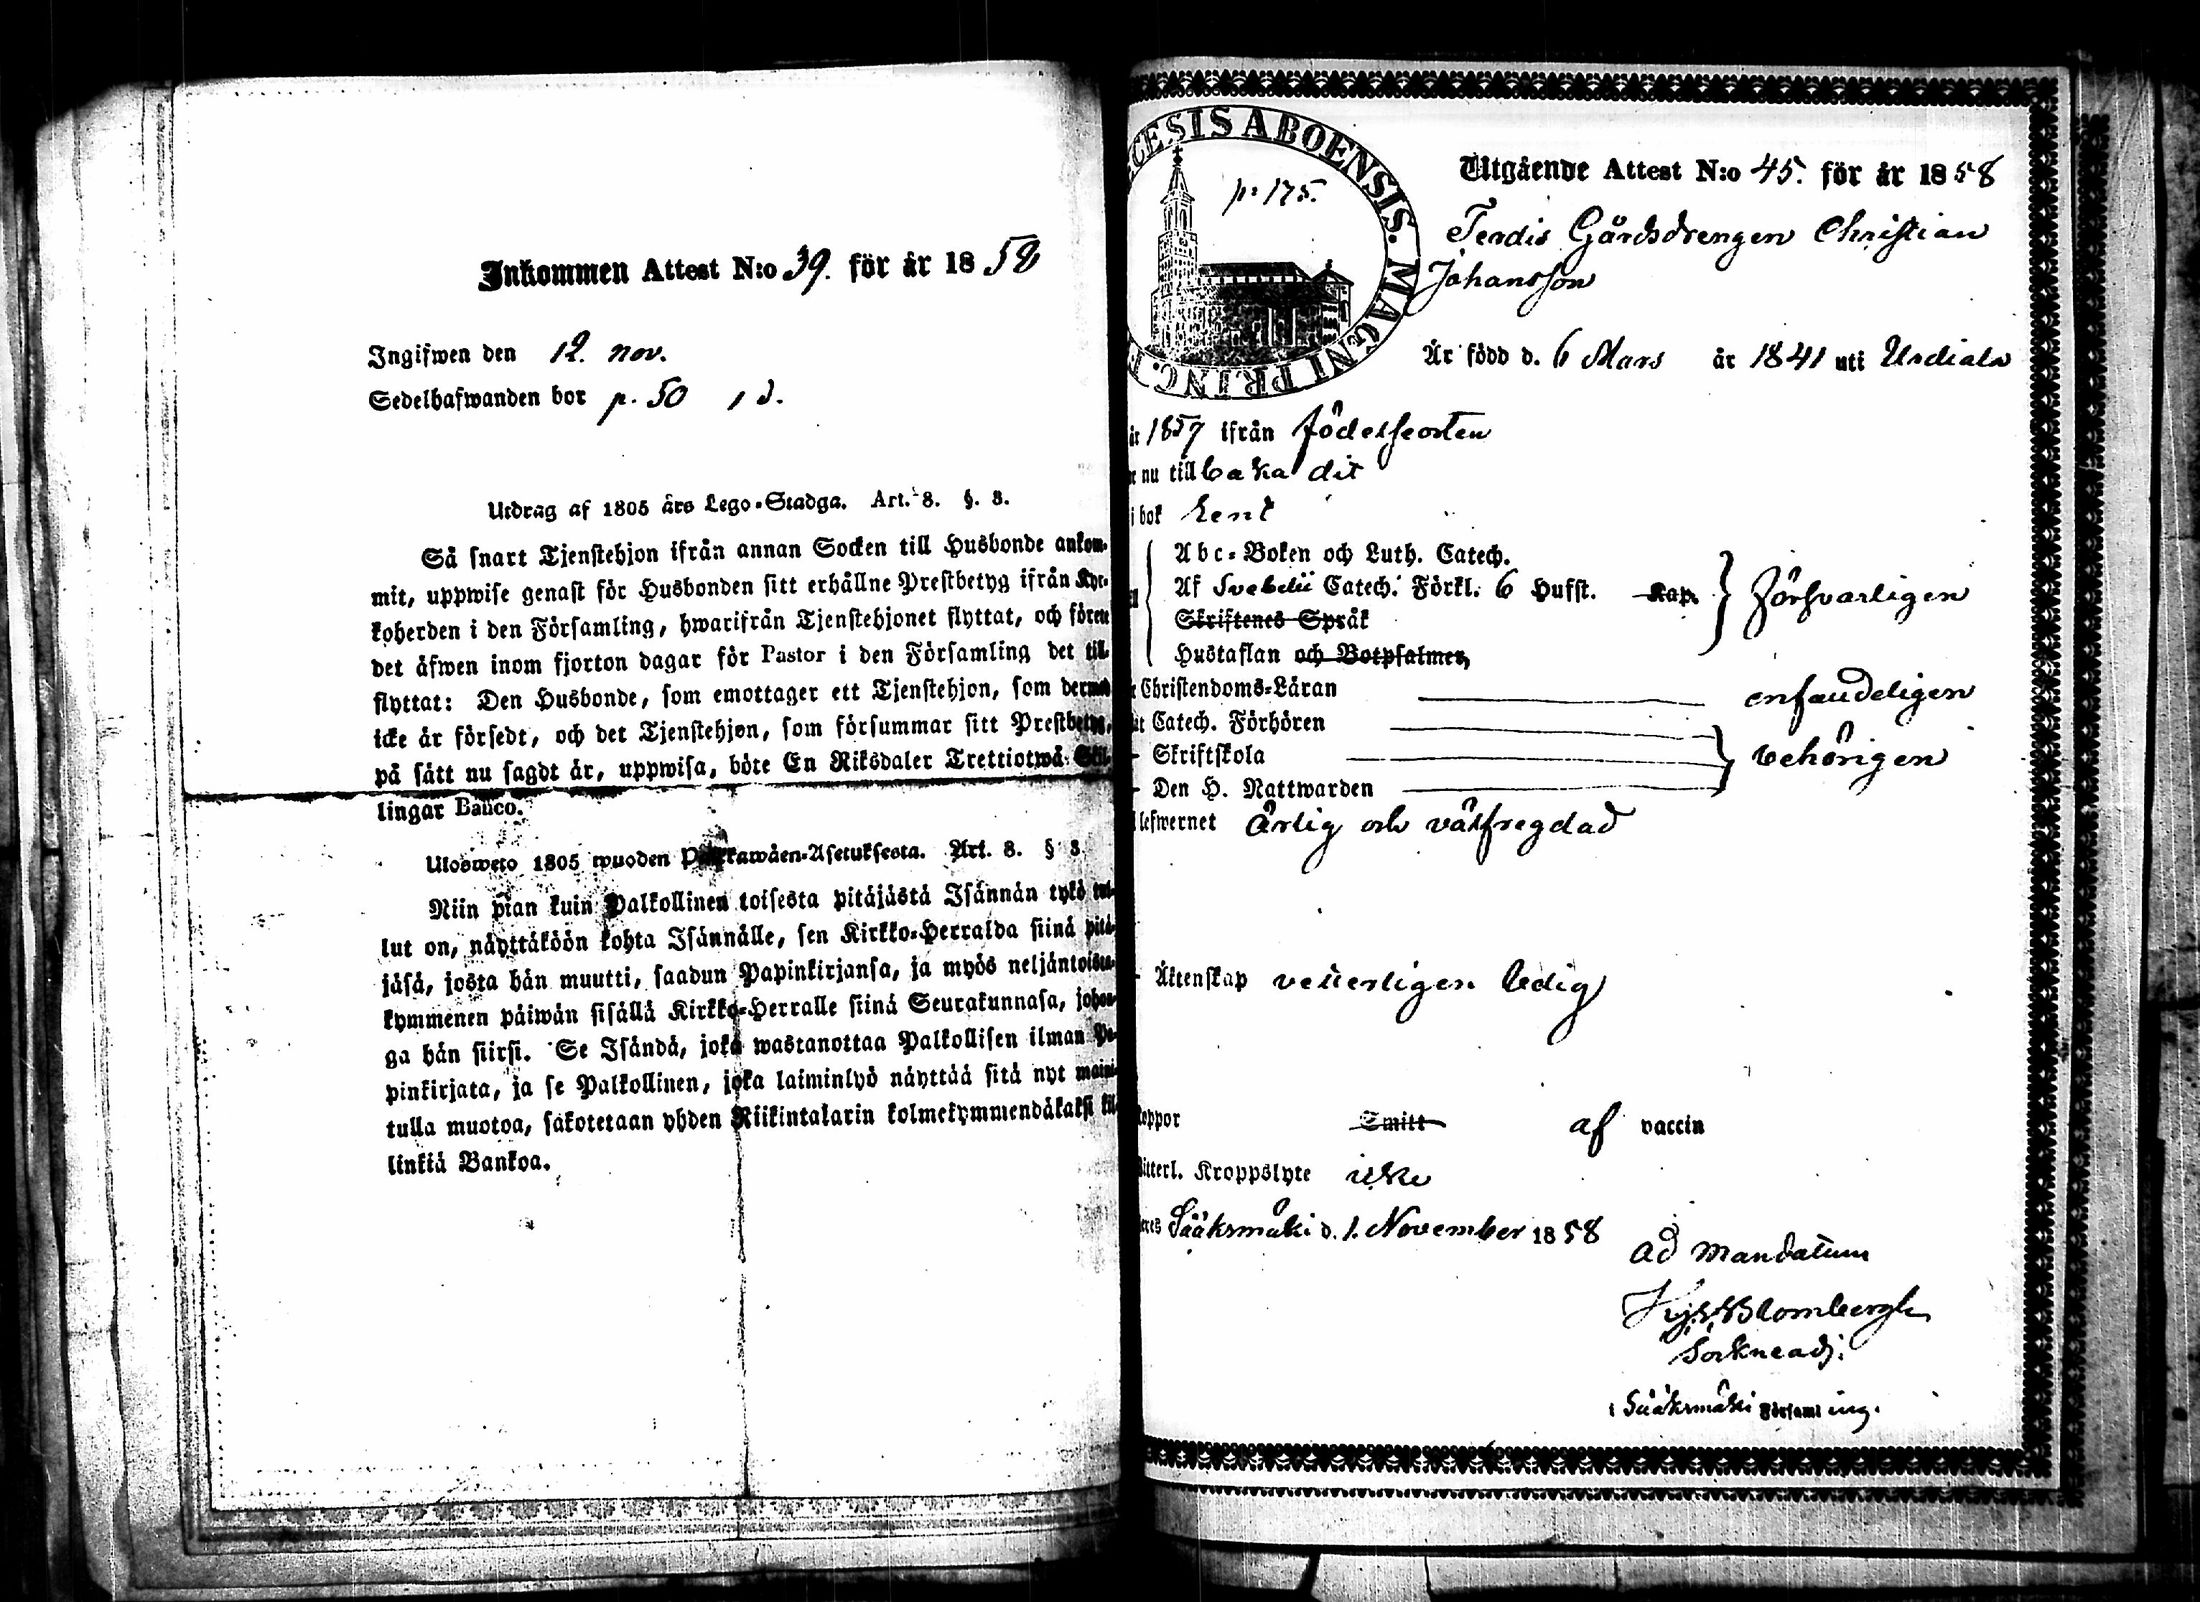 Inkommen Attest N:o 39. för år 1858
Ingifwen den 12. nov.
Sedelhafwanden bor p. 50 1 d.
Utdrag af 1805 års Lego-Stadga. Art. 8. §. 3.
Så snart Tjenstehjon ifrån annan Socken till Husbonde ankom-
mit, uppwise genast för Husbonden sitt erhållne Prestbetyg ifrån Kyr-
koherden i den Församling, hwarifrån Tjenstehjonet flyttat, och förete
det äfwen inom fjorton dagar för Pastor i den Församling det till-
flyttat: Den Husbonde, som emottager ett Tjenstehjon, som dermed
icke är försedt, och det Tjenstehjon, som försummar sitt Prestbetyg,
på sätt nu sagdt är, uppwisa, böte En Riksdaler Trettiotwå Skil-
lingar Banco.
Ulosweto 1805 wuoden Palkkawäen-Asetuksesta. Art. 8. § 3.
Niin pian kuin Palkollinen toisesta pitäjästä Isännän tykö tul-
lut on, näyttäköön kohta Isännälle, sen Kirkko-Herralda siinä pitä-
jäsä, josta hän muutti, saadun Papinkirjansa, ja myös neljäntoista-
kymmenen päiwän sisällä Kirkko-Herralle siinä Seurakunnasa, johon-
ga hän siirsi. Se Isändä, joka wastanottaa Palkollisen ilman Pa-
pinkirjata, ja se Palkollinen, joka laiminlyö näyttää sitä nyt maini-
tulla muotoa, sakotetaan yhden Riikintalarin kolmekymmendäkaksi kil-
linkiä Bankoa.
CESIS ABOENSIS. MAGNI PRINC. F
p. 175.
Utgående Attest N:o 45. för år 1858
Gårdsdrengen Christian
Johansson
Är född d. 6 Mars år 1841 uti Urdiala
år 1857 ifrån födelseorten
nu tillbaka dit
i bok lent
Abc-Boken och Luth. Catech.
Af Svebelii Catech. Förkl. 6 Hufst. Kap. försvarligen
Skriftenes Språk
Hustaflan och Botpsalmer,
Christendoms-Läran enfaudeligen
Catech. Förhören
Skriftskola behörigen
Den H. Nattwarden
lefwernet ärlig och välfregdad
Äktenskap veterligen ledig
koppor Smitt af vaccin
Kroppslyte icke
Sääksmäki d. 1. November 1858
ad mandatum
Blombergh
Sockneadj.
i Sääksmäki Församling.